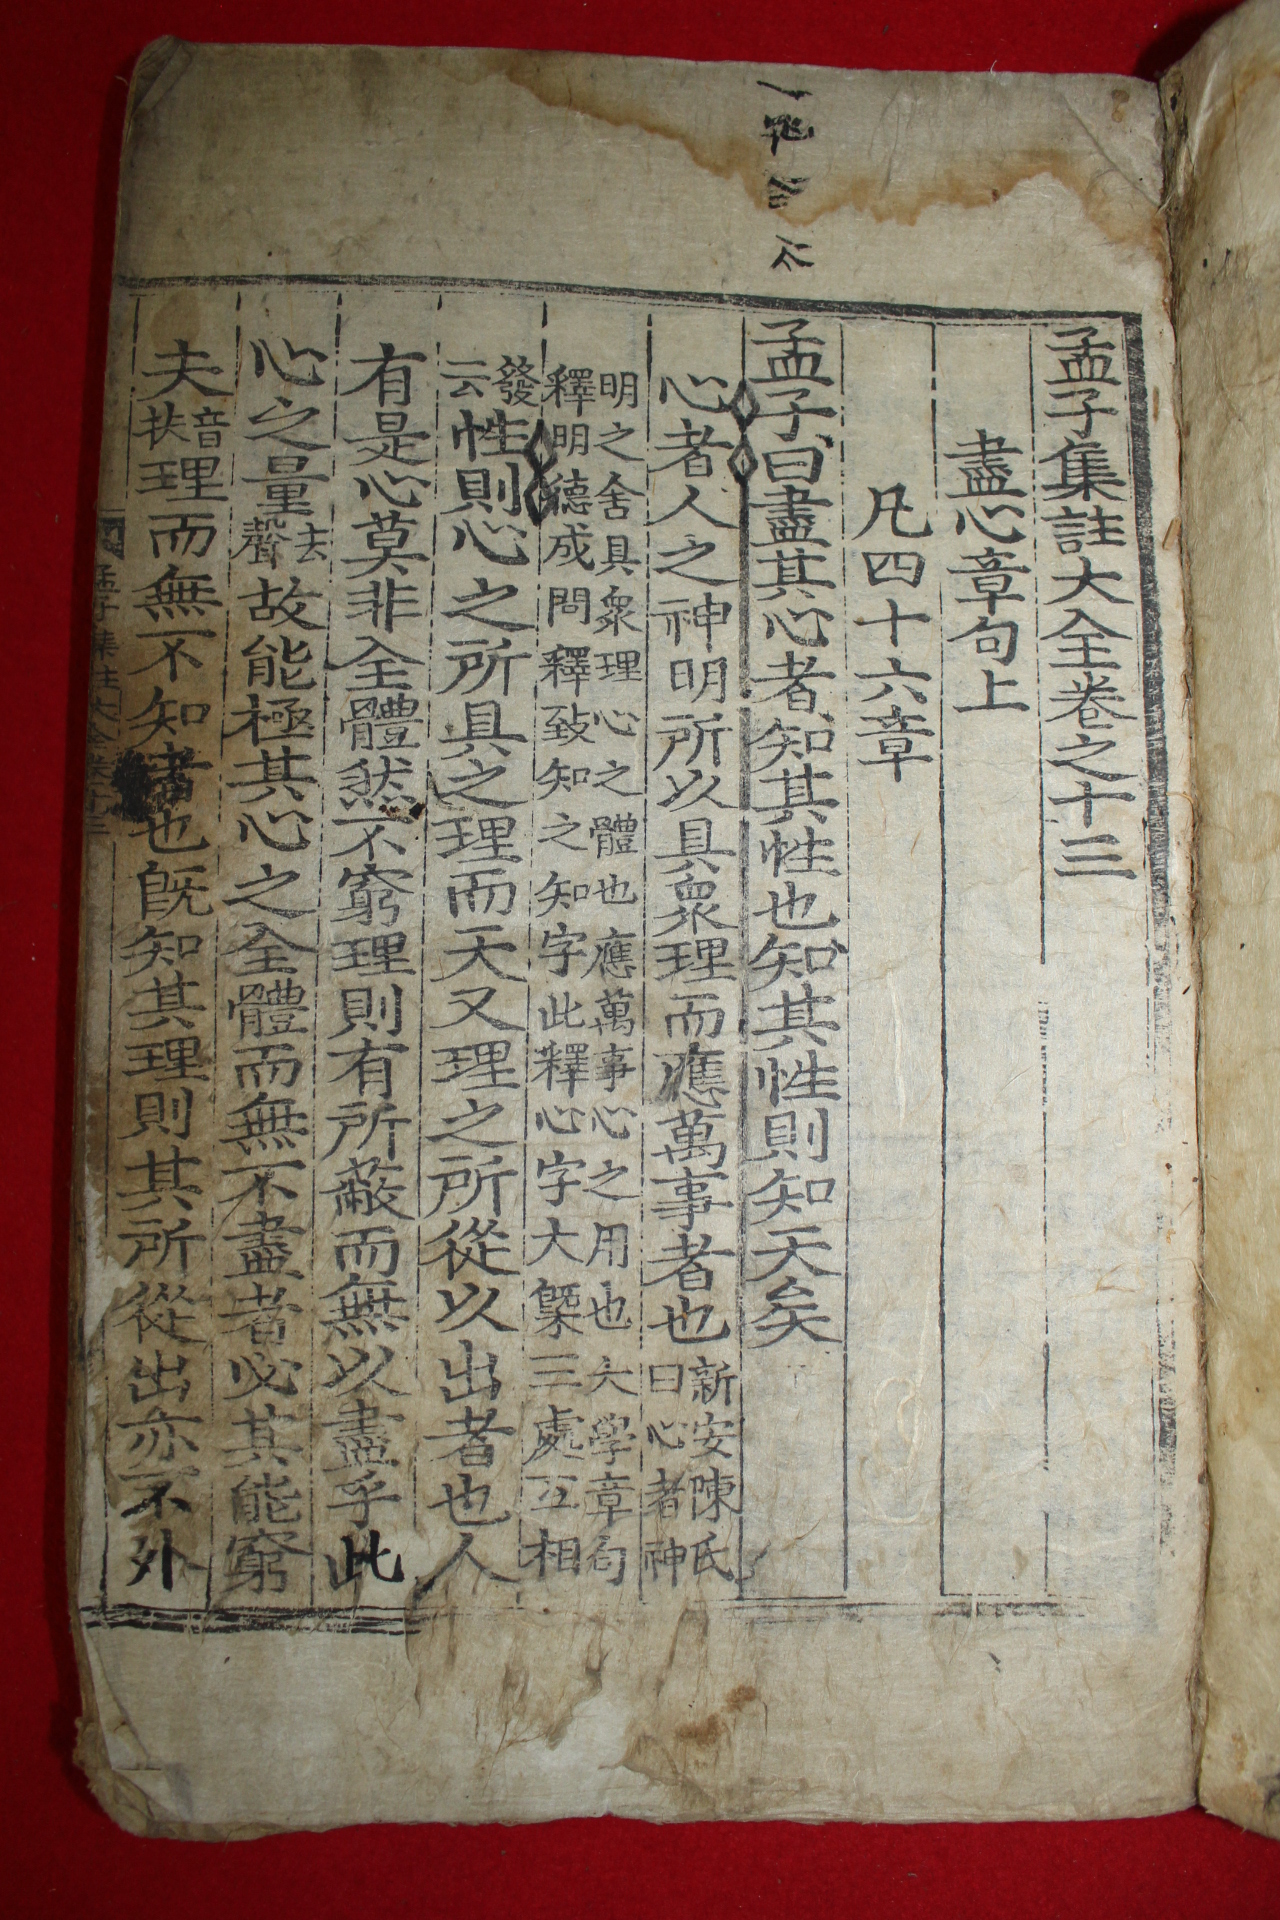 孟子集註大全卷之十三
盡心章句上
凡四十六章
孟子曰盡其心者知其性也知其性則知天矣
心者人之神明所以具衆理而應萬事者也新安陳氏曰心者神
明之舍具衆理心之體也應萬事心之用也大學章句釋明德成問釋致知之知字此釋心字大槩三處互相
發云性則心之所具之理而天又理之所從以出者也人
有是心莫非全體然不窮理則有所蔽而無以盡乎此
心之量去聲故能極其心之全體而無不盡者必其能窮
夫音扶理而無不知者也旣知其理則其所從出亦不外
孟子集註大全卷十三